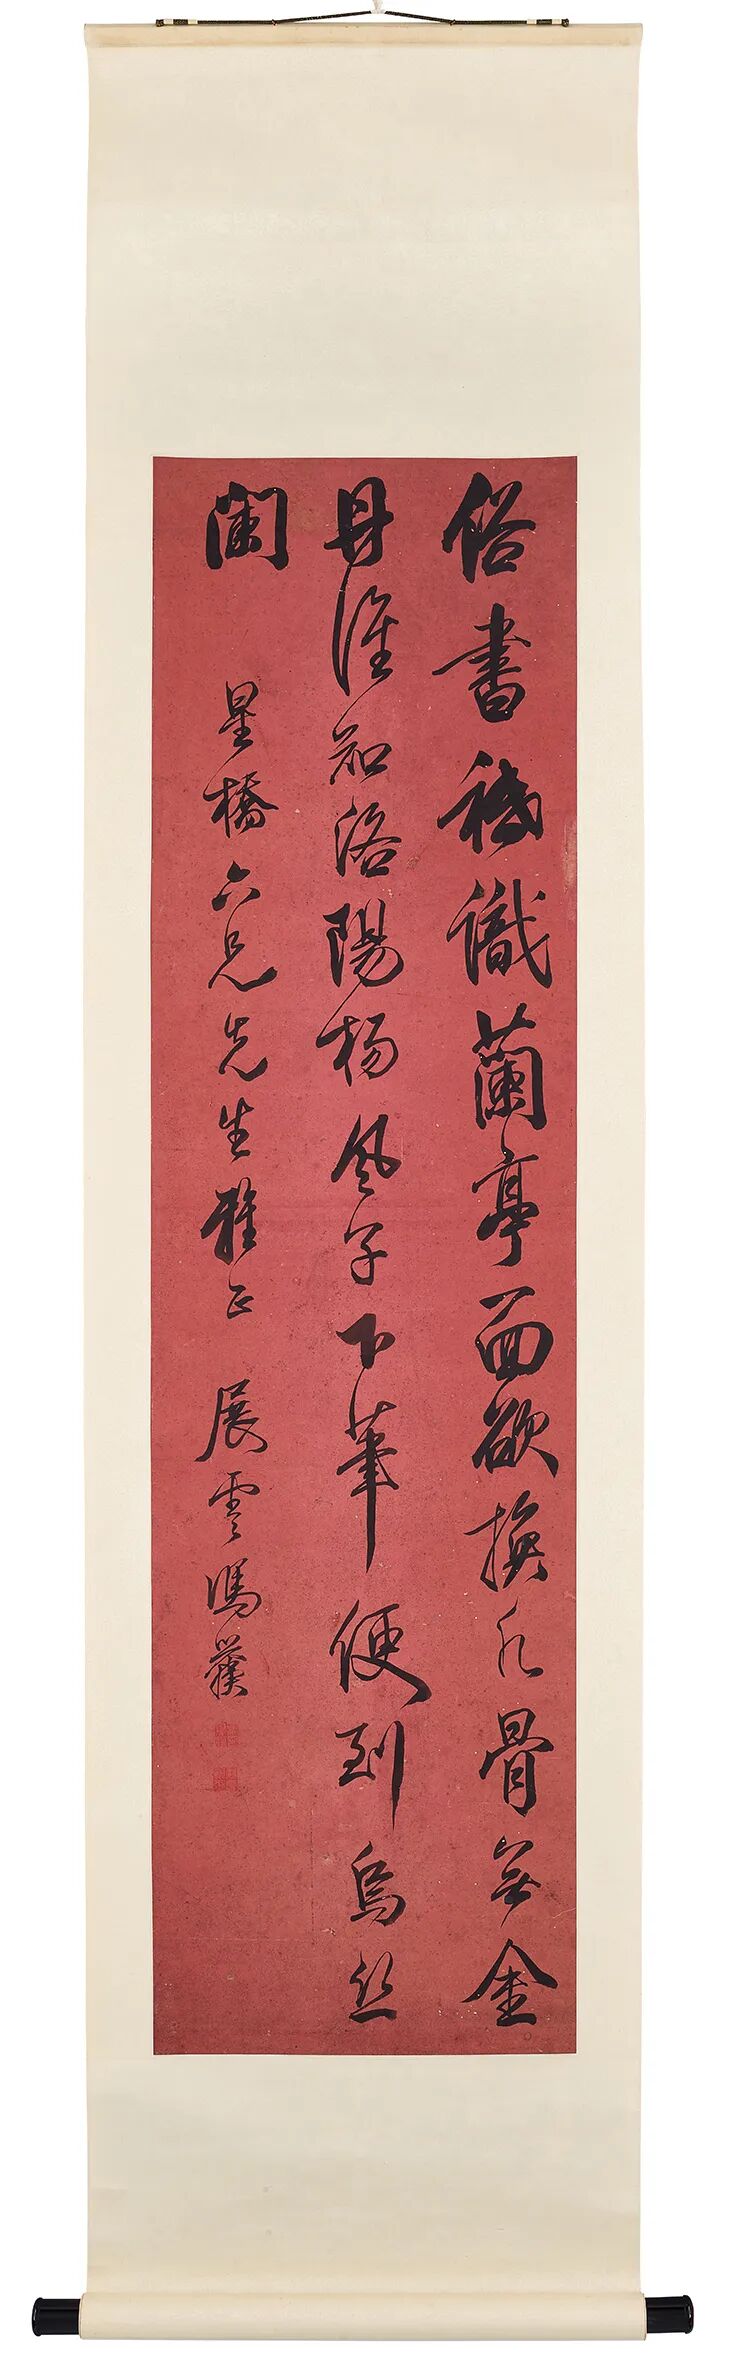 俗書秪識蘭亭面欲換凡骨無金
丹誰知洛陽楊風子下筆便到烏丝
闌 星橋六兄先生雅正 展雲馮